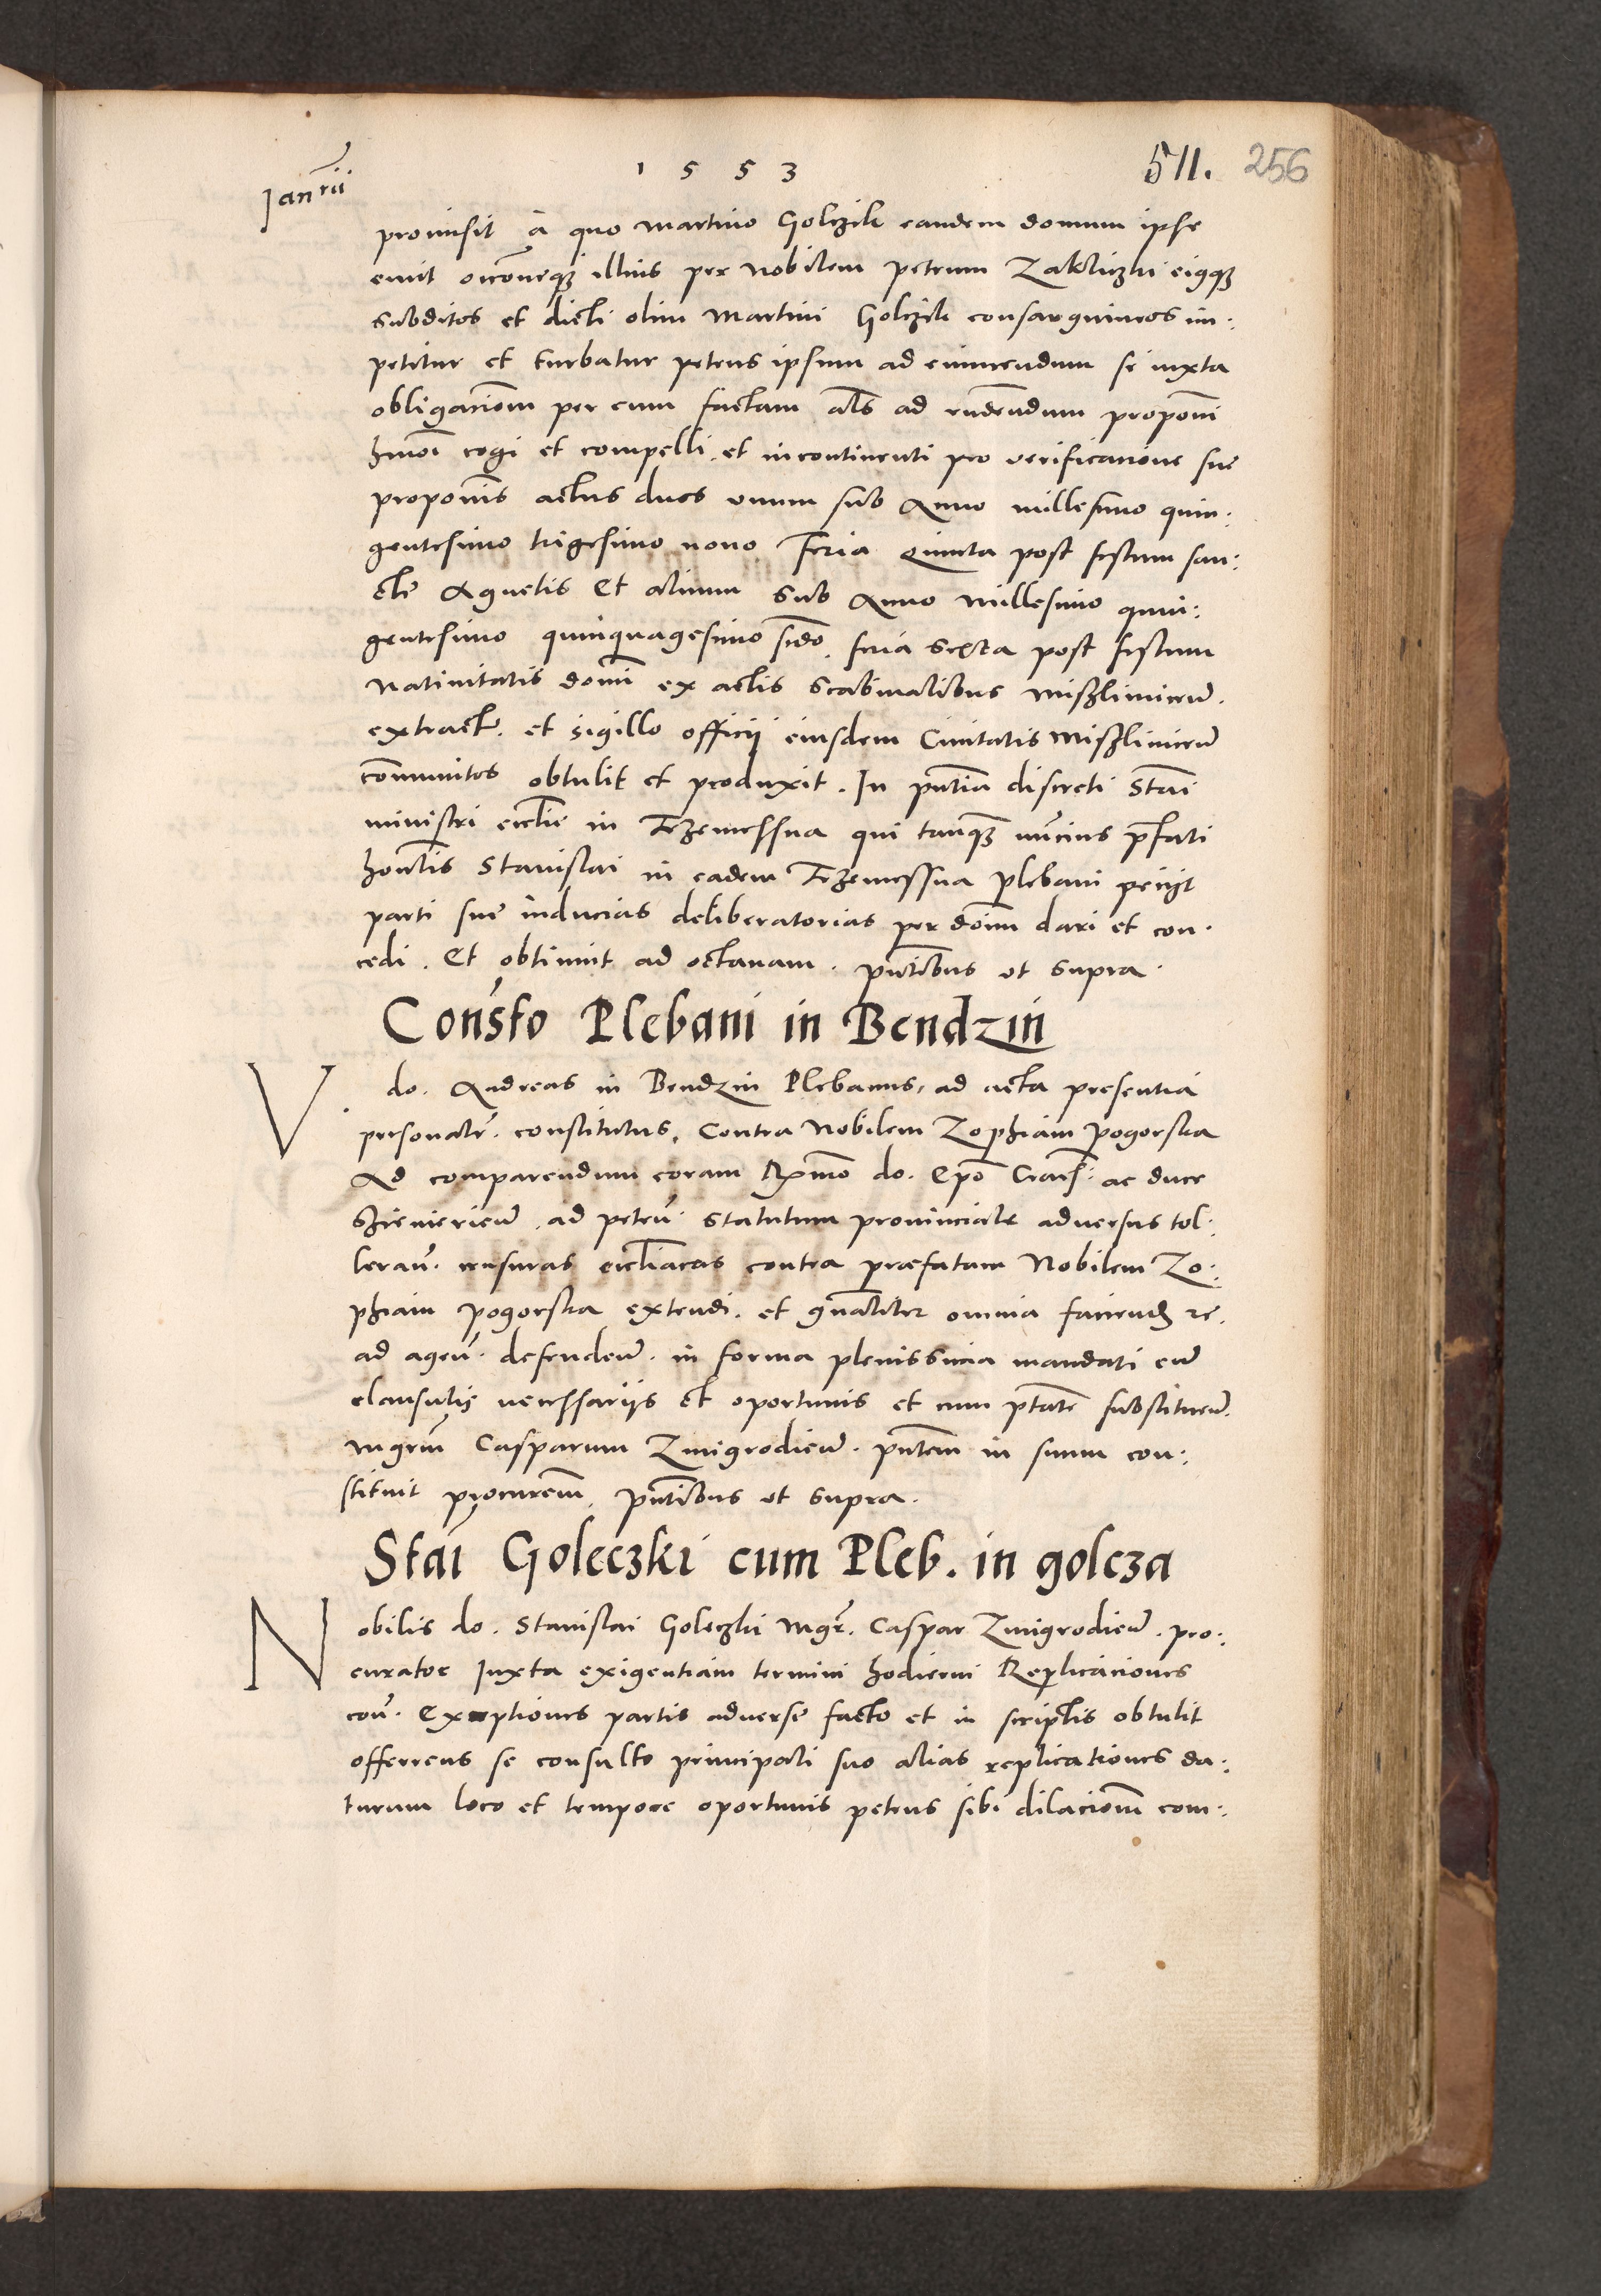 Ianrii
1 5 5 3
511. 256
promisit à quo Martino Golczik eandem domum ipse
emit occōneq illius per Nobilem petrum Zakliczki eiqq
subditos et dicti olim Martini Golczik consanguineos im:
petitur et turbatur petens ipsum ad eximendum se iuxta
obligacioēm per eum factam als ad rndendum proponi
hmōi cogi et compelli. et incontinenti pro verificatione sue
proponis actus duos vnum sub Anno millesimo quin:
gentesimo trigesimo nono Feria Quinta post festum san:
cte Agnetis Et alium Sub Anno Millesimo quin:
gentesimo quinquagesimo scdo. feria Sexta post festum
Natiuitatis domi ex actis Scabinalibus Mislimicen.
extract. et sigillo officij eiusdem Ciuitatis Mislimicen
cōmunitos obtulit et produxit. In pntia discreti Stai
ministri ecclie in Trzemessna qui tanq nucius prfati
honlis Stanislai in eadem Trzemessna plebani petijt
parti sue inducias deliberatorias per dōnm dari et con:
cedi. Et obtinuit ad octauam. pntibus vt supra.
Consto Plebani in Bendzin
V. do. Andreas in Bendzin Plebanus, ad acta presentia
personalr. constitutus, Contra Nobilem Zophiam Pogorska
Ad comparendum coram Rmo do. Epo Crac. ac duce
Szieuieriens. ad peten. Statutum prouinciale aduersus tol:
leran. censuras eccliacas contra præfatam Nobilem Zo:
phiam Pogorska extendi. et gnaliter omnia faciend re.
ad agen. defenden. in forma plenissima mandati cum
clausulis necessarijs et oportunis et cum ptate substituen.
Mgrm Casparum Zmigrodicen. pntem in suum con:
stituit procurem. pntibus vt supra.
Stai Goleczki cum Pleb. in golcza
Nobilis do. Stanislai Goleczki Mgr. Caspar Zmigrodicen. pro:
curator Iuxta exigentiam termini hodierni Replicaciones
con. Exceptiones partis aduerse facto et in scriptis obtulit
offerens se consulto principali suo alias replicationes da:
turum loco et tempore oportunis petens sibi dilacionem com: